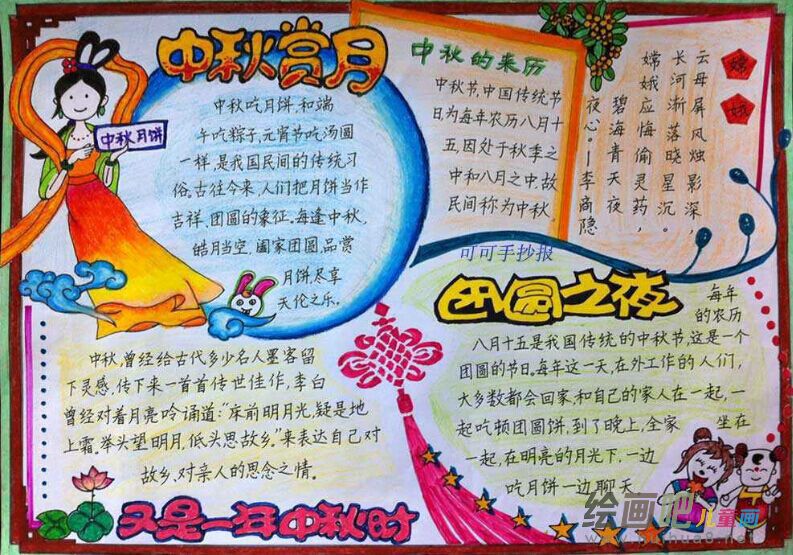 中秋赏月
中秋月饼
中秋吃月饼,和端
午吃粽子,元宵节吃汤圆
一样,是我国民间的传统习
俗。古往今来,人们把月饼当作
吉祥、团圆的象征。每逢中秋,
皓月当空,阖家团圆,品赏
月饼,尽享
天伦之乐。
中秋的来历
中秋节,中国传统节
日,为每年农历八月十
五,因处于秋季之
中和八月之中,故
民间称为中秋。
嫦娥
云母屏风烛影深,
长河渐落晓星沉。
嫦娥应悔偷灵药,
碧海青天夜
夜心。—李商隐
可可手抄报
团圆之夜
每年
的农历
八月十五是我国传统的中秋节,这是一个
团圆的节日,每年这一天,在外工作的人们,
大多数都会回家,和自己的家人在一起,一
起吃顿团圆饼,到了晚上,全家坐在
一起,在明亮的月光下,一边
吃月饼一边聊天
中秋,曾经给古代多少名人墨客留
下灵感,传下来一首首传世佳作,李白
曾经对着月亮吟诵道:“床前明月光,疑是地
上霜。举头望明月,低头思故乡。”来表达自己对
故乡,对亲人的思念之情。
又是一年中秋时
绘画吧儿童画